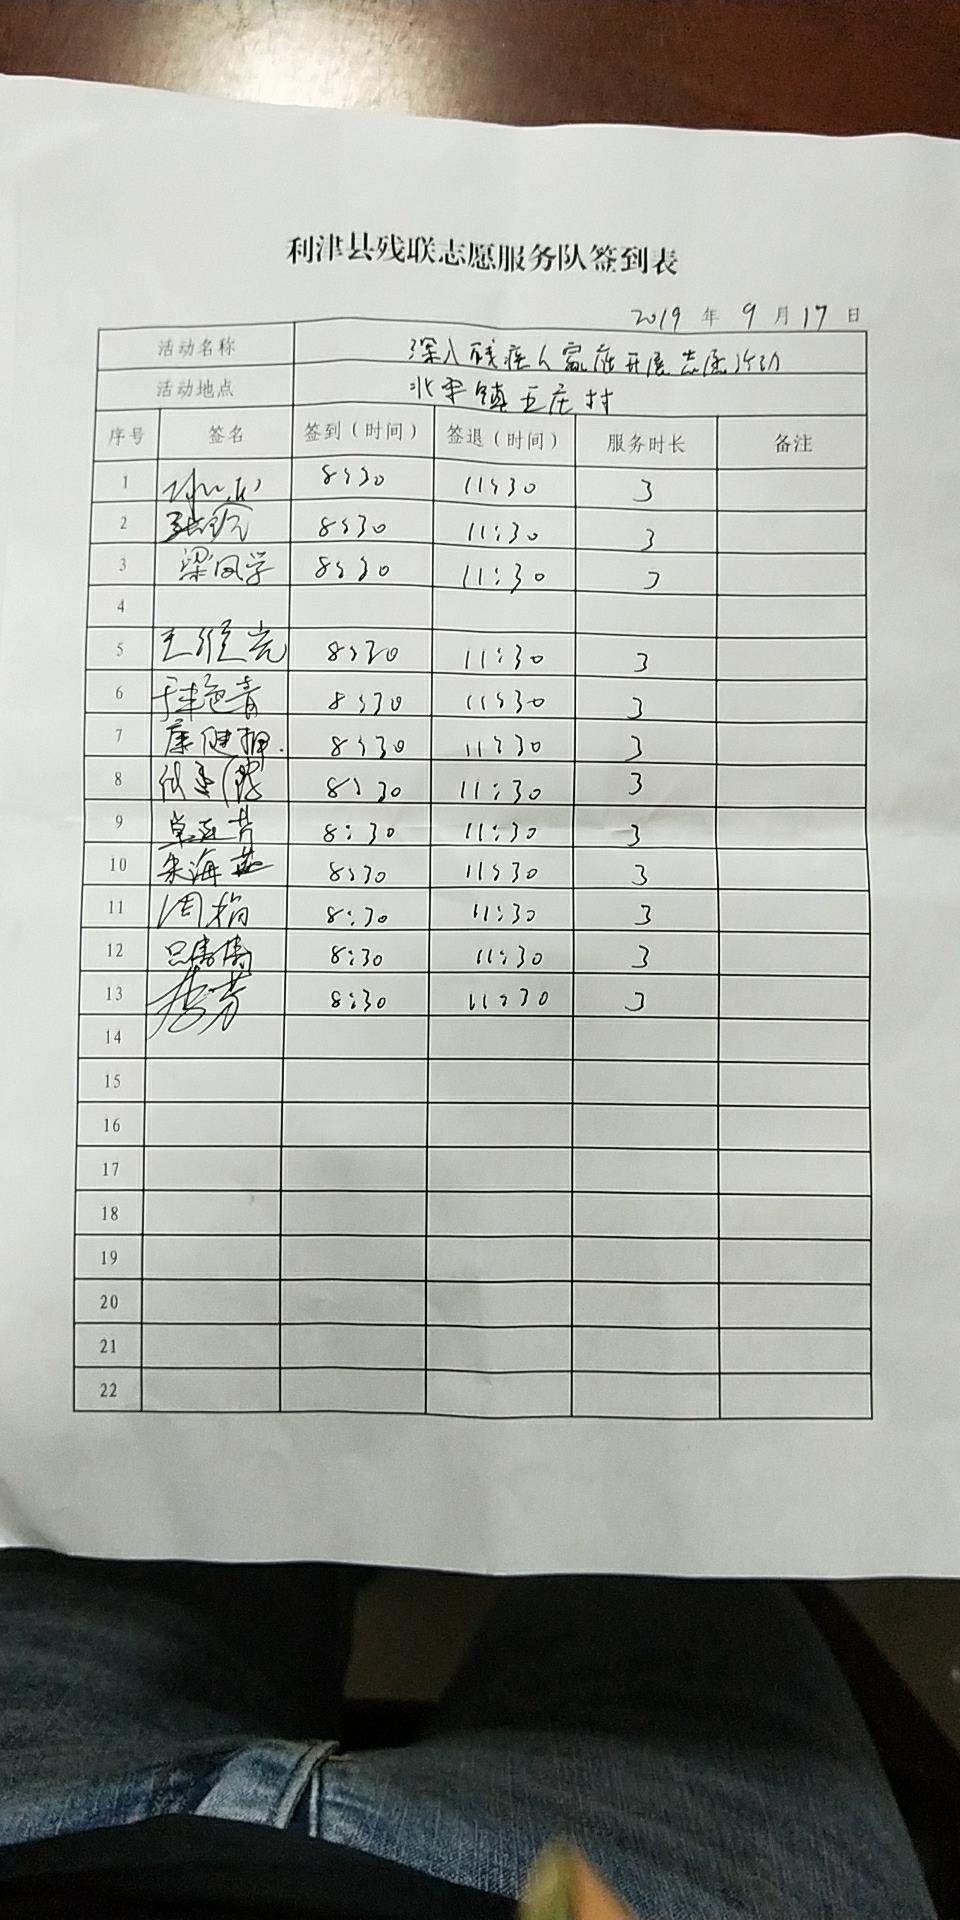 利津县残联志愿服务队签到表
2019 年 9 月 17 日
活动名称 深入残疾人家庭开展志愿活动
活动地点 北宋镇五庄村
序号 签名 签到(时间) 签退(时间) 服务时长 备注
1 8:30 11:30 3
2 8:30 11:30 3
3 梁凤学 8:30 11:30 3
4
5 8:30 11:30 3
6 8:30 11:30 3
7 康健 8:30 11:30 3
8 8:30 11:30 3
9 8:30 11:30 3
10 朱海燕 8:30 11:30 3
11 周梅 8:30 11:30 3
12 8:30 11:30 3
13 8:30 11:30 3
14
15
16
17
18
19
20
21
22